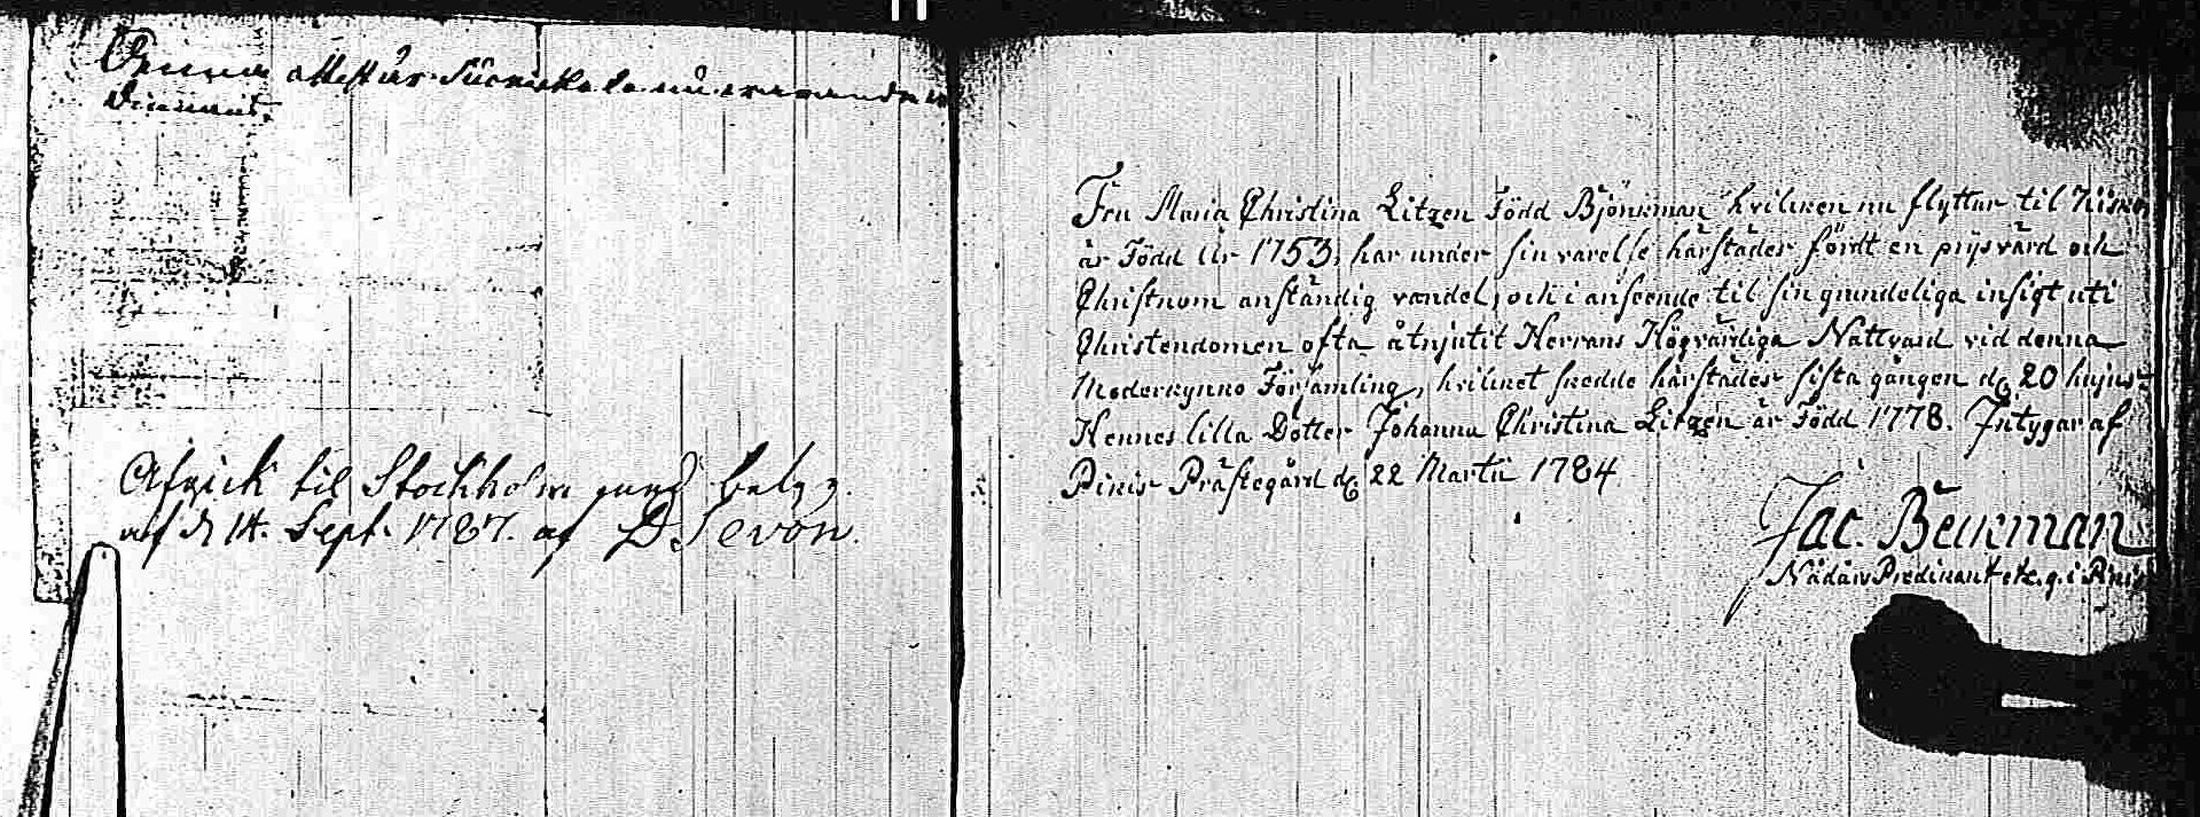 Denna attest är
Afgick til Stockholm
af d 14. Sept. 1787. af D Sevon.
Fru Maria Christina Litzen Född Björkman hvilken nu flyttar til
är Född år 1753, har under sin varelse härstädes fördt en prijsvärd och
Christnom anständig vandel, och i anseende til sin grundeliga insigt uti
Christendomen ofta åtnjutit Herrans Högvärdiga Nattvard vid denna
Moderkyrko Församling, hvilket skedde härstädes sista gången d. 20 hujus.
Hennes lilla Dotter Johanna Christina Litzen är Född 1778. Intygar af
Pikis Prästegård d. 22 Martii 1784.
Jac. Beckman
Nådårs Predikant etc. i Pikis